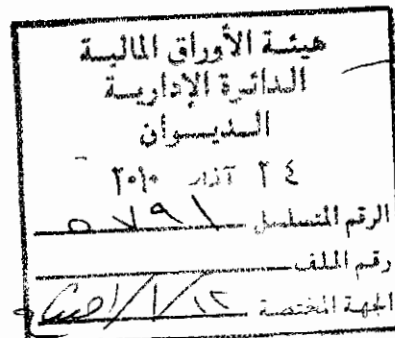 هيئة الأوراق المالية
الدائرة الإدارية
الديوان
٢٤ آذار ٢٠١٠
الرقم المتسلسل ٥٧٩١
رقم الملف
الجهة المختصة